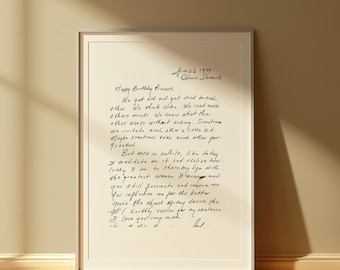 June 23 1994
Odense, Denmark
Happy Birthday Princess,
We get old and get used to each
other. We think alike. We read each
others minds. We know what the
other wants without asking. Sometimes
we irritate each other a little bit.
Maybe sometimes take each other for
granted.
But once in awhile, like today,
I meditate on it and realize how
lucky I am to share my life with
the greatest woman I ever met.
You still fascinate and inspire me.
You influence me for the better.
You're the object of my desire, the
#1 Earthly reason for my existence.
I love you very much.